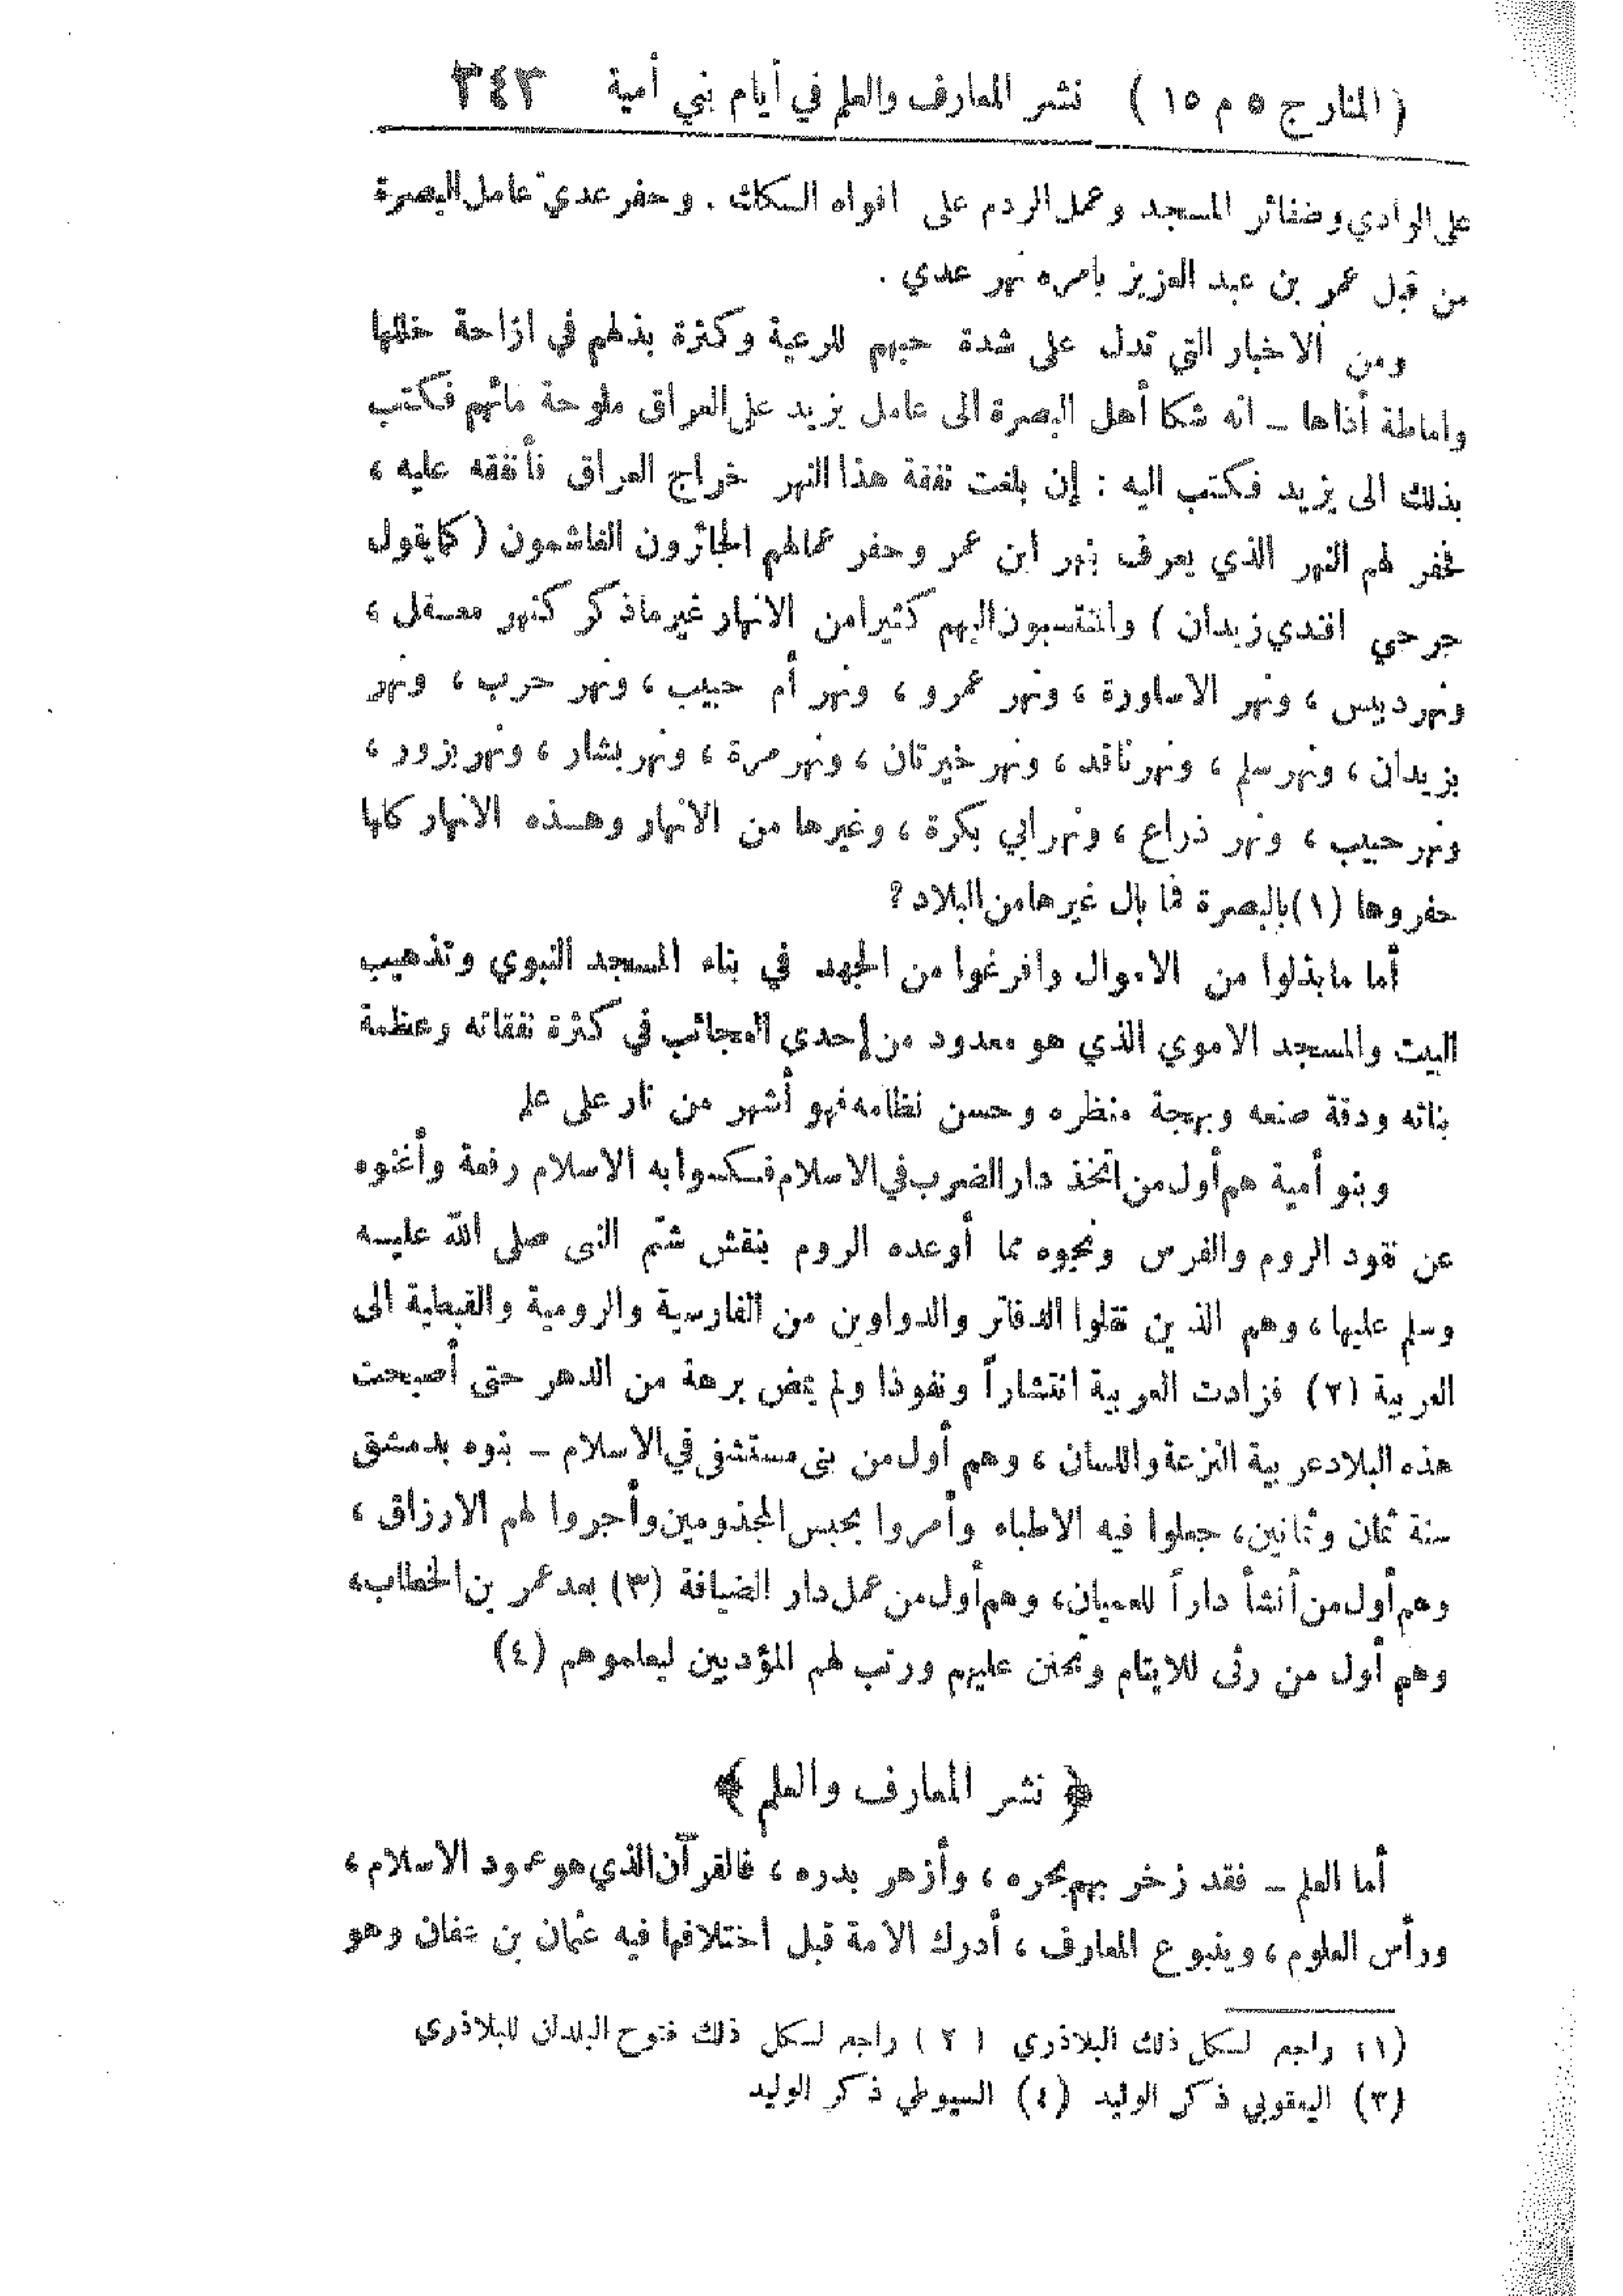 (المنار ج ٥ م ١٥) نشر المعارف والعلم في أيام بني أمية ٣٤٣
على الوادي وضفائر المسجد وعمل الردم على افواه السكك . وحفر عدي عامل البصرة
من قبل عمر بن عبد العزيز بامره نهر عدي .
ومن الاخبار التي تدل على شدة حبهم للرعية وكثرة بذلهم في ازاحة خللها
واماطة أذاها ــ انه شكا أهل البصرة الى عامل يزيد على العراق ملوحة مائهم فكتب
بذلك الى يزيد فكتب اليه : إن بلغت نفقة هذا النهر خراج العراق فأنفقه عليه ،
فحفر لهم النهر الذي يعرف بنهر ابن عمر وحفر عمالهم الجائرون الغاشمون ( كما يقول
جرجي افندي زيدان ) والمنتسبون اليهم كثيرا من الانهار غير ما ذكر كنهر معقل ،
ونهر دبيس ، ونهر الاساورة ، ونهر عمرو ، ونهر أم حبيب ، ونهر حرب ، ونهر
يزيدان ، ونهر سلم ، ونهر نافذ ، ونهر خيرتان ، ونهر مرة ، ونهر بشار ، ونهر بزور ،
ونهر حبيب ، ونهر ذراع ، ونهر ابي بكرة ، وغيرها من الانهار وهذه الانهار كلها
حفروها (١) بالبصرة فما بال غيرها من البلاد ؟
أما ما بذلوا من الاموال وافرغوا من الجهد في بناء المسجد النبوي وتذهيب
البيت والمسجد الاموي الذي هو معدود من إحدى العجائب في كثرة نفقاته وعظمة
بنائه ودقة صنعه وبهجة منظره وحسن نظامه فهو أشهر من نار على علم
وبنو أمية هم أول من اتخذ دار الضرب في الاسلام فكسوا به الاسلام رفعة وأغنوه
عن نقود الروم والفرس ونجوه مما أوعده الروم بنقش شتم النبي صلى الله عليه
وسلم عليها ، وهم الذين نقلوا الدفاتر والدواوين من الفارسية والرومية والقبطية الى
العربية (٢) فزادت العربية انتشاراً ونفوذا ولم تمض برهة من الدهر حتى أصبحت
هذه البلاد عربية النزعة واللسان ، وهم أول من بنى مستشفى في الاسلام ــ بنوه بدمشق
سنة ثمان وثمانين ، جعلوا فيه الاطباء وأمروا بحبس المجذومين وأجروا لهم الارزاق ،
وهم أول من أنشأ داراً للعميان ، وهم أول من عمل دار الضيافة (٣) بعد عمر بن الخطاب ،
وهم أول من رثى للايتام وتحنن عليهم ورتب لهم المؤدبين ليعلموهم (٤)
﴿ نشر المعارف والعلم ﴾
أما العلم ــ فقد زخر بهم بحره ، وأزهر بدره ، فالقرآن الذي هو عمود الاسلام ،
ورأس العلوم ، وينبوع المعارف ، أدرك الامة قبل اختلافها فيه عثمان بن عفان وهو
(١) راجع لكل ذلك البلاذري (٢) راجع لكل ذلك فتوح البلدان للبلاذري
(٣) اليعقوبي ذكر الوليد (٤) السيوطي ذكر الوليد